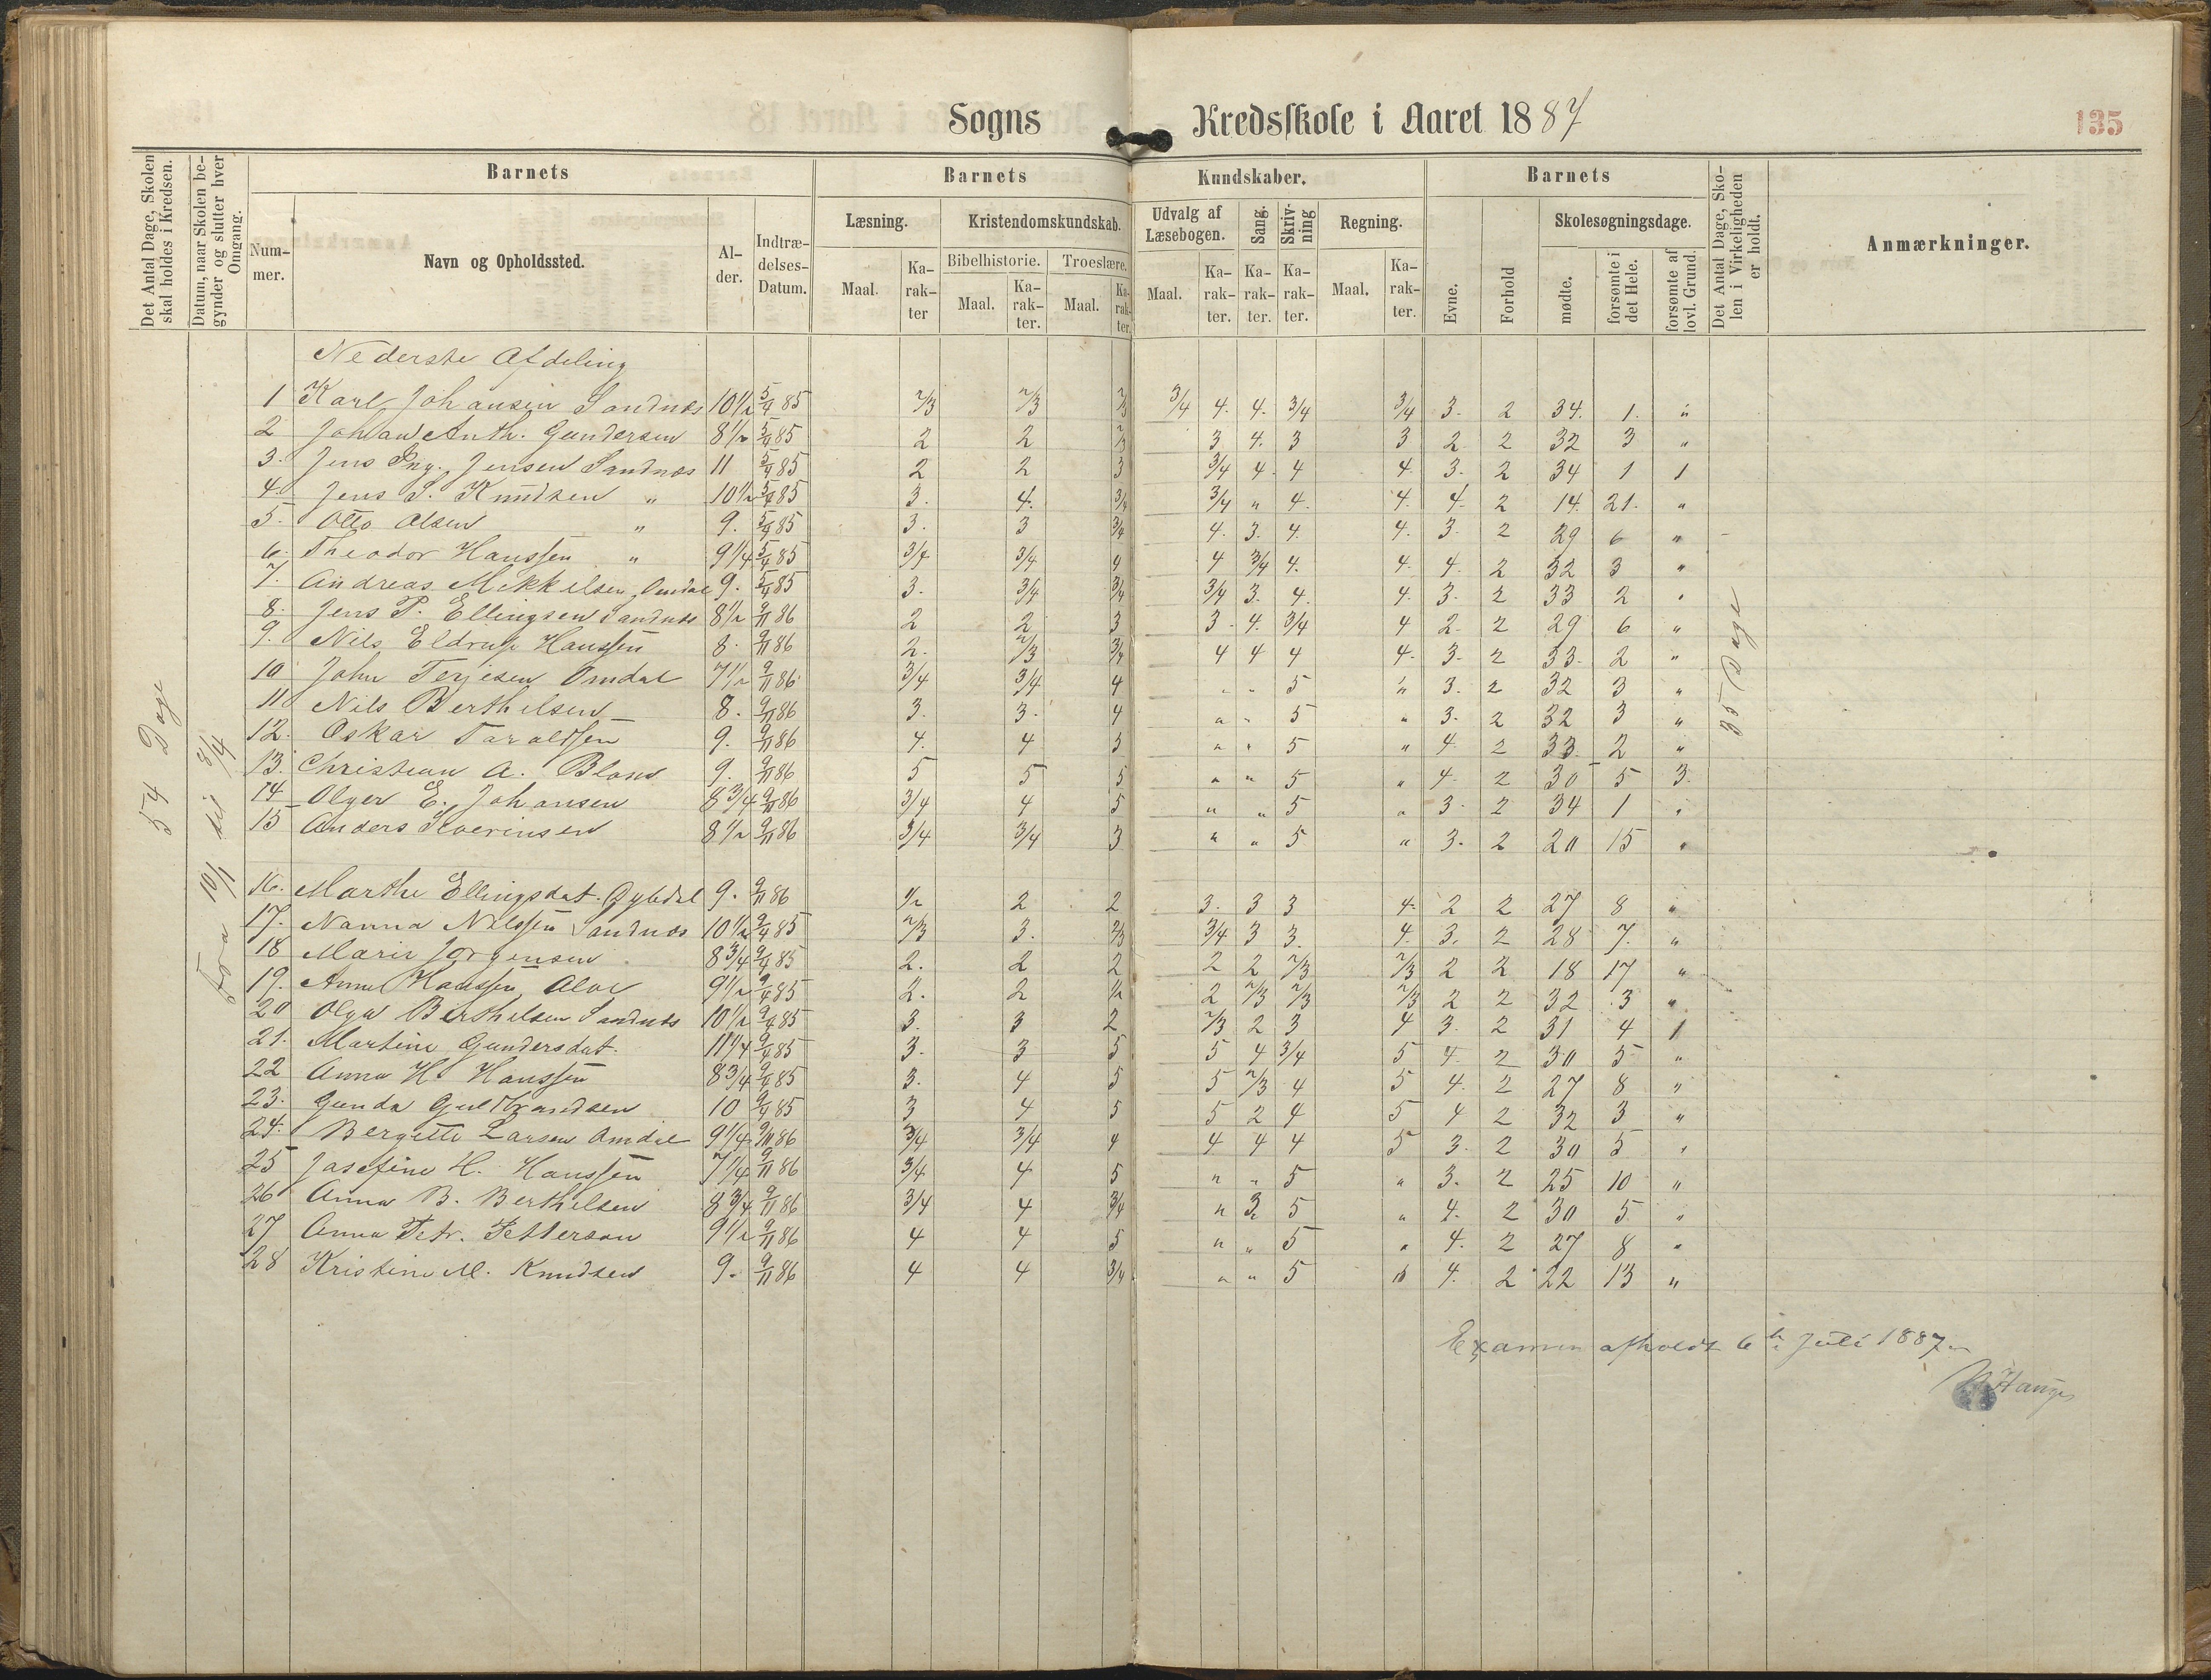 Sogns Kredsskole i Aaret 1887
135
Det Antal Dage, Skolen skal holdes i Kredsen.
Datum, naar Skolen begynder og slutter hver Omgang.
Barnets
Barnets Kundskaber.
Barnets
Det Antal Dage, Skolen i Virkeligheden er holdt.
Anmærkninger.
Nummer.
Navn og Opholdssted.
Alder.
Indtrædelses-Datum.
Læsning.
Kristendomskundskab.
Udvalg af Læsebogen.
Sang.
Skrivning
Regning.
Evne.
Forhold
Skolesøgningsdage.
Bibelhistorie.
Troeslære.
mødte.
forsømte i det Hele.
forsømte af lovl. Grund.
Maal. Karakter Maal. Karakter. Maal. Karakter. Maal. Karakter. Karakter. Karakter. Maal. Karakter.
54 Dage
Fra 10/1 til 3/4
35 Dage
Nederste Afdeling
1 Karl Johansen Sandnæs 10 1/2 5/4 85 2/3 2/3 2/3 3/4 4. 4. 3/4 3/4 3. 2 34. 1. "
2 Johan Anth. Gundersen 8 1/2 5/4 85 2 2 2/3 3 4. 3 3 2 2 32 3 "
3. Jens Ing. Jensen Sandnæs 11 5/4 85 2 2 3 3/4 4. 4 4. 3. 2 34 1 1
4. Jens S. Knudsen " 10 1/2 5/4 85 3. 4. 3/4 3/4 " 4. 4. 4. 2 14. 21. "
5. Otto Olsen " 9. 5/4 85 3. 3 3/4 4. 3. 4. 4. 3. 2 29 6 "
6. Theodor Hanssen " 9 1/4 5/4 85 3/4 3/4 4 4 3/4 4. 4. 4. 2 32 3 "
7. Andreas Mikkelsen, Omdal 9. 5/4 85 3. 3/4 3/4 3/4 3. 4. 4. 3. 2 33 2 "
8. Jens P. Ellingsen Sandnæs 8 1/2 9/11 86 2 2 3 3. 4. 3/4 4 2 2 29 6 "
9. Nils Eldrup Hanssen 8. 9/11 86 2. 2/3 3/4 4 4 4 4. 3. 2 33. 2 "
10 John Terjesen Omdal 7 1/2 9/11 86 3/4 3/4 4 " " 5 " 3. 2 32 3 "
11 Nils Berthelsen 8. 9/11 86 3. 3. 4 " " 5 " 3. 2 32 3 "
12. Oskar Taraldsen 9. 9/11 86 4. 4 3 " " 5 " 4 2 33 2 "
13. Christian A. 9. 9/11 86 5 5 5 " " 5 " 4. 2 30 5 3.
14 Olger E. Johansen 8 3/4 9/11 86 3/4 4 5 " " 5 " 3. 2 34 1 "
15 Anders Severinsen 8 1/2 9/11 86 3/4 3/4 3 " " 5 " 3. 2 20 15 "
16. Marthe Ellingsdat. 9. 9/11 86 1/2 2 2 3. 3 3 4. 2 2 27 8 "
17. Nanna Nilssen Sandnæs 10 1/2 9/4 85 2/3 3. 2/3 3/4 3 3. 4. 3. 2 28 7. "
18 Marie Jorgensen 8 3/4 9/4 85 2. 2 2 2 2 2/3 2/3 2 2 18 17 "
19. Anna Hanssen Alve 9 1/2 9/4 85 2. 2 1/2 2 2/3 2/3 2/3 2 2 32 3 "
20 Olga Berthelsen Sandnæs 10 1/2 9/4 85 3. 3 2 2/3 2 3 4 3. 2 31 4 1
21. Martine Gundersdat. 11 1/4 9/4 85 3. 3 5 5 4 3/4 5 4. 2 30 5 "
22 Anna H. Hanssen 8 3/4 9/4 85 3. 4 5 5 2/3 4 5 4. 2 27 8 "
23. Gunda Gulbrandsen 10 9/4 85 3 4 5 5 2 4 5 4 2 32 3 "
24. Bergitte Larsen Omdal 9 1/4 9/11 86 3/4 3/4 4 4 4 4 5 3. 2 30 5 "
25 Josefine H. Hanssen 7 1/4 9/11 86 3/4 4 5 " " 5 " 3. 2 25 10 "
26 Anna B. Berthelsen 8 3/4 9/11 86 3/4 4 3/4 " 3 5 " 4. 2 30 5 "
27 Anna Petr. Petterson 9 1/2 9/11 86 4 4 5 " " 5 " 4. 2 27 8 "
28 Kristine M. Knudsen 9. 9/11 86 4 4 3/4 " " 5 " 4. 2 22 13 "
Examen afholdt 6te Juli 1887.